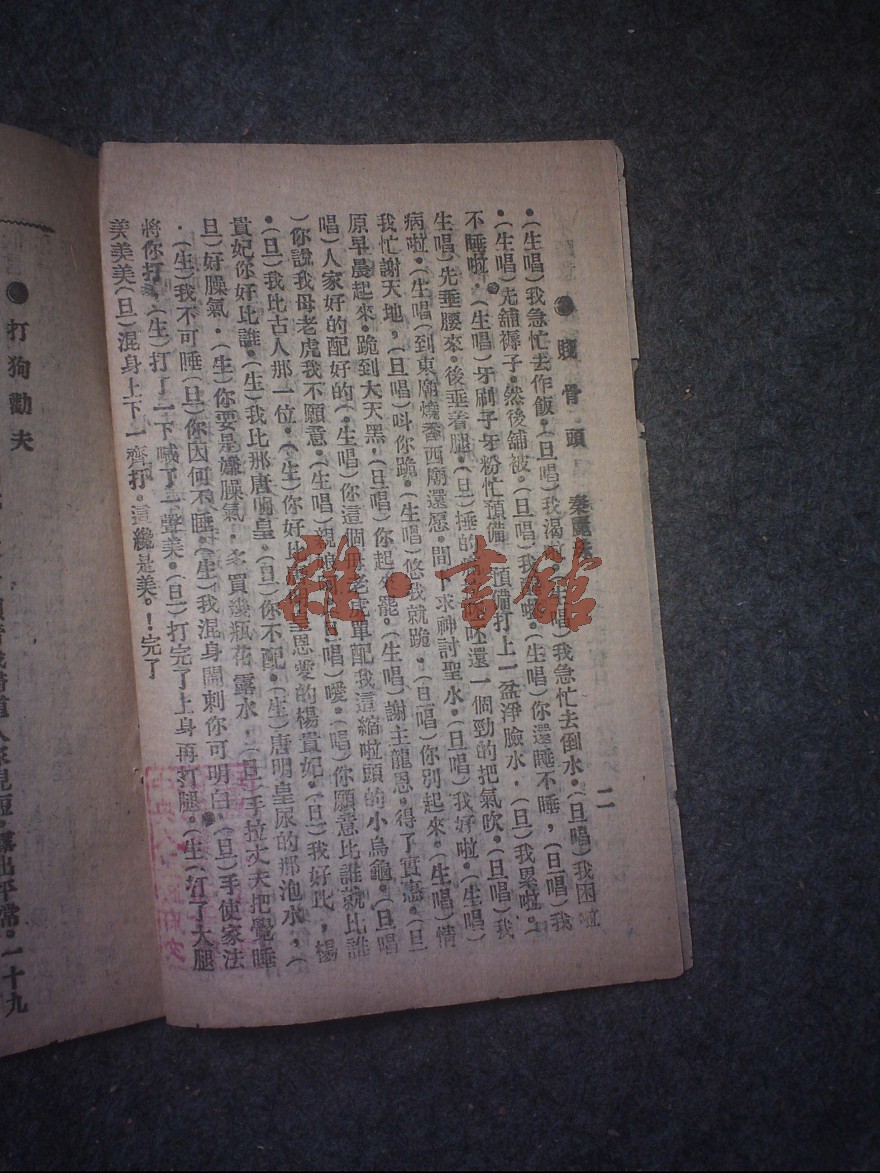 ●賤骨頭 秦
二
•(生唱)我急忙去作飯•(旦唱)我渴啦•(生唱)我急忙去倒水•(旦唱)我困啦
•(生唱)先舖褥子•然後舖被•(旦唱)我•(生唱)你還睡不睡,(旦唱)我
不睡啦•(生唱)牙刷子牙粉忙預備•預備打上一盆淨臉水•(旦)我累啦•(
生唱)先垂腰來•後垂着腿•(旦)捶的還一個勁的把氣吹•(旦唱)我
病啦•(生唱)到東廟燒香西廟還愿•間下求神討聖水•(旦唱)我好啦•(生唱)
我忙謝天地,(旦唱)呌你跪•(生唱)您我就跪•(旦唱)你別起來•(生唱)情
原早晨起來•跪到大天黑•(旦唱)你起來罷•(生唱)謝主龍恩•得了實惠•(旦
唱)人家好的配好的•(生唱)你這個母老虎單配我這縮啦頭的小烏龜•(旦唱
)你說我母老虎我不願意•(生唱)親娘唱)噯•(唱)你願意比誰就比誰
•(旦)我比古人那一位•(生)你好比皇恩愛的楊貴妃•(旦)我好比,楊
貴妃你好比誰•(生)我比那唐明皇•(旦)你不配•(生)唐明皇尿的那泡水,(
旦)好臊氣•(生)你要是嫌臊氣•多買幾瓶花露水•(旦)手拉丈夫把覺睡
•(生)我不可睡(旦)你因何不睡•(生)我混身鬧刺你可明白•(旦)手使家法
將你打•(生)打了一下喊了一聲美•(旦)打完了上身再打腿•(生)打了大腿
美美美(旦)混身上下一齊打•這纔是美•!完了
●打狗勸夫
出平常•一十九
雜•書館